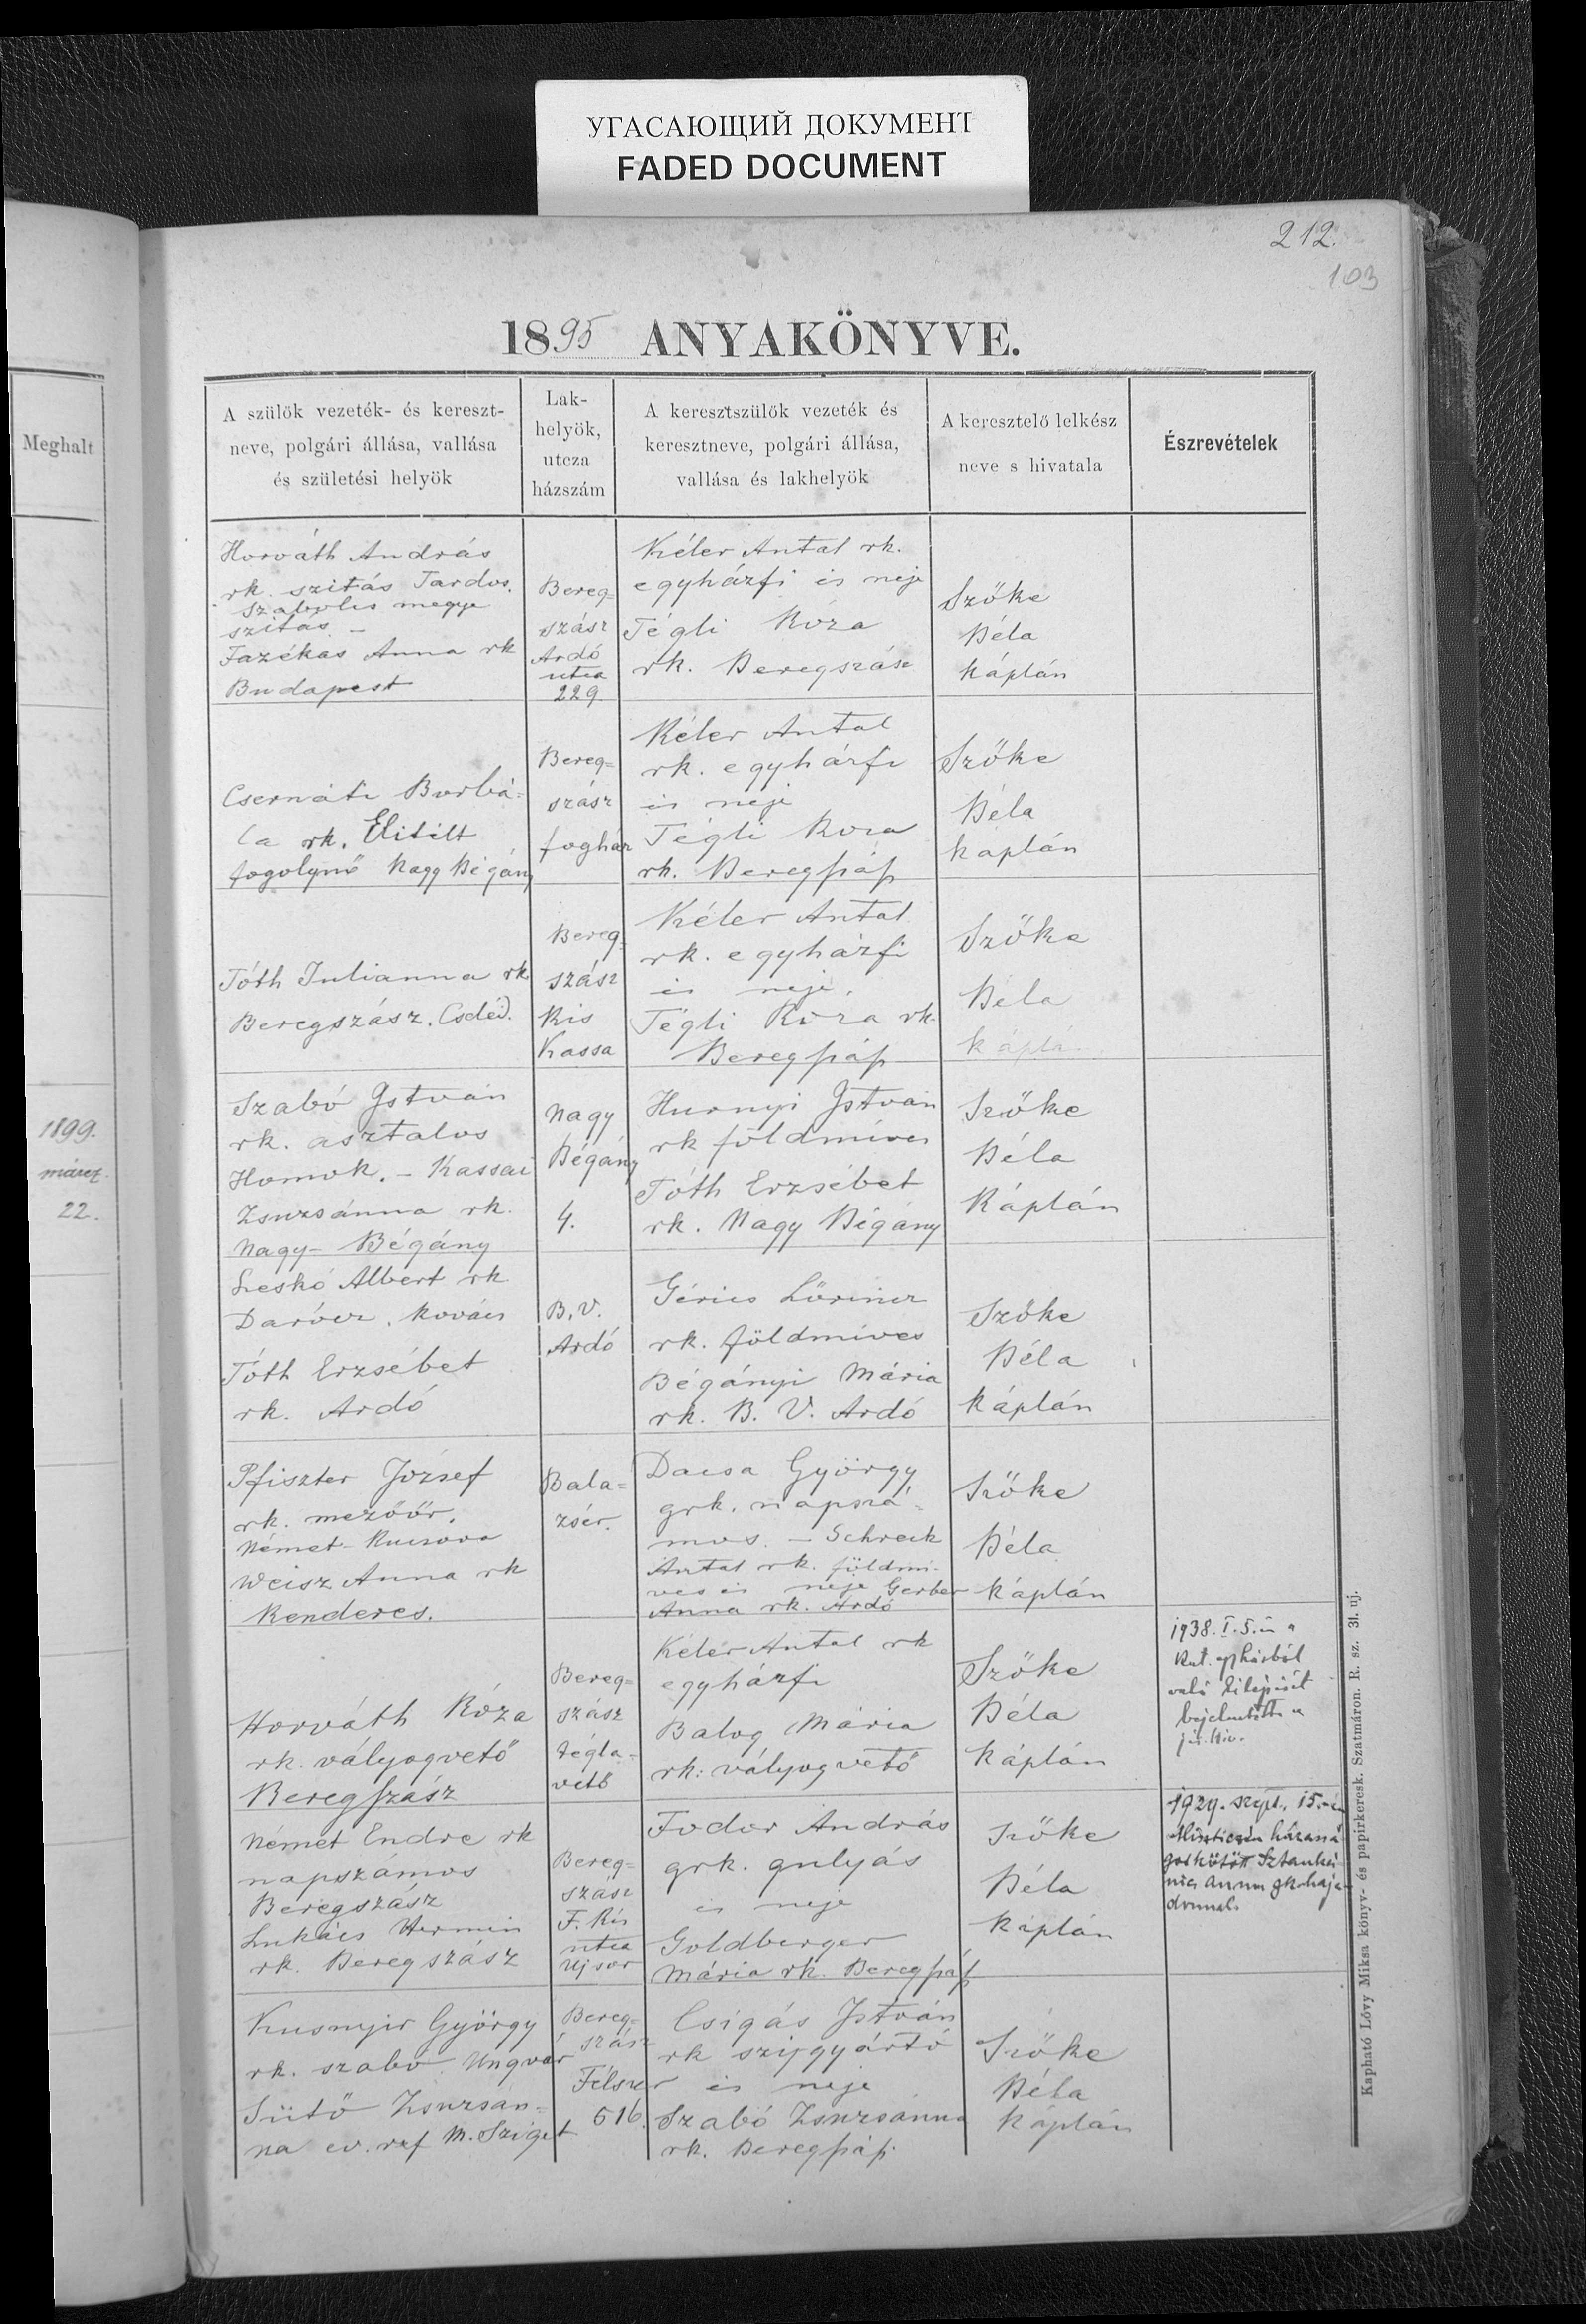 УГАСАЮЩИЙ ДОКУМЕНТ
FADED DOCUMENT
212.
103
1895 ANYAKÖNYVE.
Meghalt
1899.
márcz.
22.
A szülök vezeték- és kereszt-
neve, polgári állása, vallása
és születési helyök
Lak-
helyök,
utcza
házszám
A keresztszülök vezeték és
keresztneve, polgári állása,
vallása és lakhelyök
A keresztelő lelkész
neve s hivatala
Észrevételek
Horváth András
rk. szitás Tardos.
Szabolcs megye
szitás. –
Fazékas Anna rk
Budapest
Bereg=
szász
Ardó
utca
229.
Kéler Antal rk.
egyházfi és neje
Tégli Róza
rk. Beregszász
Szőke
Béla
káplán
Csernáti Borbá-
la rk. Elitilt
fogolynő Nagy Bégány
Bereg=
szász
fogház
Kéler Antal
rk. egyházfi
és neje
Tégli Roza
rk. Beregſzáſz
Szőke
Béla
kaplán
Tóth Julianna rk
Beregszász. Cseléd.
Bereg=
szász
Kis
Kassa
Kéler Antal
rk. egyházfi
és neje.
Tégli Roza rk.
Beregſzáſz
Szőke
Béla
káplá
Szabó István
rk. asztalos
Homok. – Kassai
Zsuzsánna rk.
Nagy- Bégány
Nagy
Bégány
4.
Hunyi István
rk földmíves
Tóth Erzsébet
rk. Nagy Bégány
Szőke
Béla
Káplán
Leskó Albert rk
Darócz. Kovács
Tóth Erzsébet
rk. Ardó
B. V.
Ardó
Gérics Lörincz
rk. földmíves
Bégányi Mária
rk. B. V. Ardó
Szőke
Béla
káplán
Pfiszter József
rk. mezőőr.
Német- Kucsova
Weisz Anna rk
Kenderes.
Bala=
zsér.
Dacsa György
grk. napszá-
mos. – Schreck
Antal rk. földmi-
ves és neje Gerber
Anna rk. Ardó
Szőke
Béla
káplán
Horváth Róza
rk. vályogvető
Beregſzász
Bereg=
szász
tégla-
vető
Kéler Antal rk
egyházfi
Balog Mária
rk. vályogvető
Szőke
Béla
káplán
1938. I. 5.-én a
Kat. egyházból
való kilépését
bejelentette a
jár. hiv.
Német Endre rk
napszámos
Beregszász
Lukács Hermin
rk. Beregszász
Bereg=
szász
F. Kis
utca
Ujsor
Fodor András
grk. gulyás
és neje
Goldberger
Mária rk. Beregſzáſz
Szőke
Béla
káplán
1929. szept. 15.-én
házassá
got kötött
Anna gk. haja-
donnal.
Kusnyir György
rk. szabo Ungvár
Sütő Zsuzsán=
na ev. ref M. Sziget
Bereg=
szász
Félszer
516.
Csigás István
rk szijgyártó
és neje
Szabó Zsuzsánna
rk. Beregſzáſz.
Szőke
Béla
káplán
Kapható Lővy Miksa könyv- és papirkeresk. Szatmáron. R. sz. 31. uj.